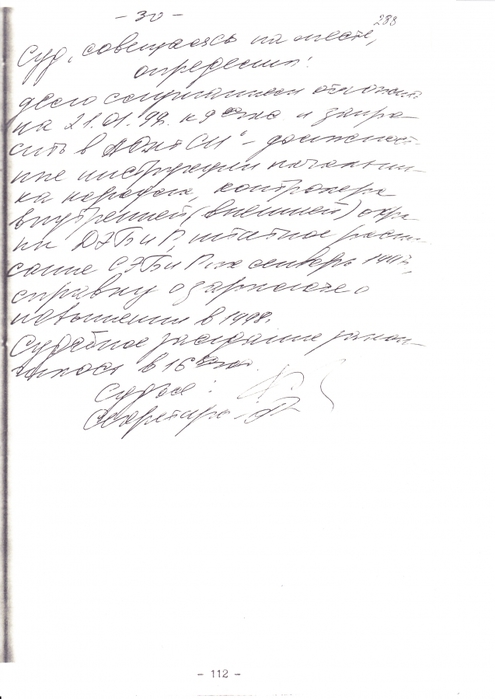 - 30 -
288
Суд, совещаясь на месте,
определил:
дело слушанием отложить
на 21.01.99. к 9 час и запро-
сить в АО - должност-
ные инструкции начальни-
ка караула, контролера
внутренней (внешней) охра-
ны ДЭБиР, штатное распи-
сание СЭБиР на сентябрь
справку о зарплате о
повышении в 1998.
Судебное заседание закон-
чилось в 16
Судья:
Секретарь
- 112 -